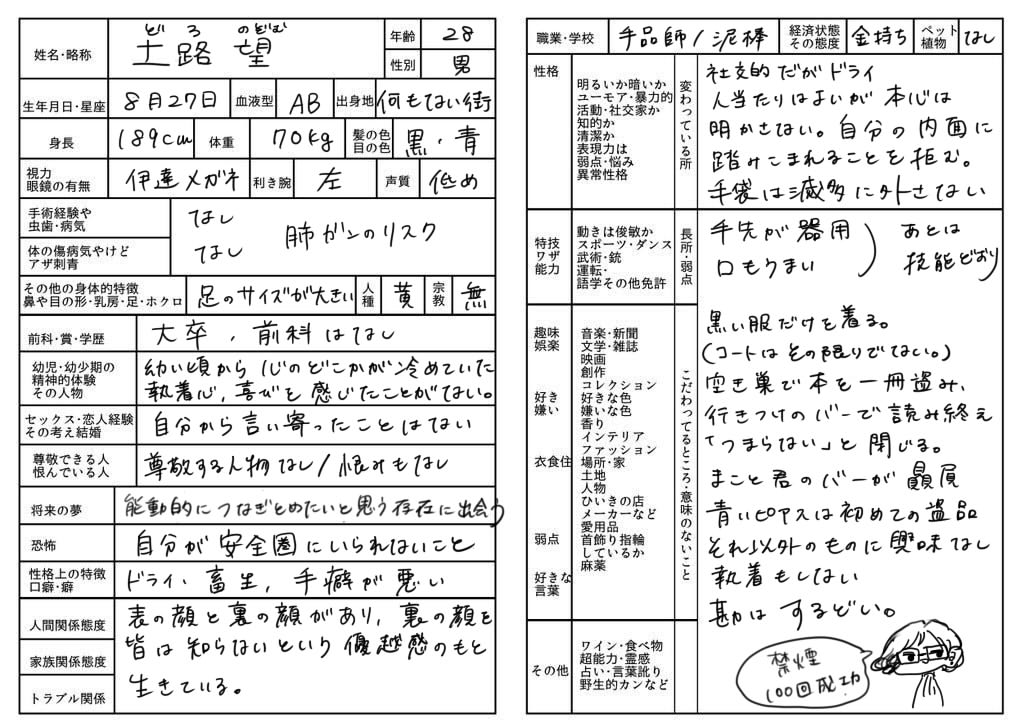 どろ のぞむ
姓名・略称 土路 望 年齢 28
性別 男
生年月日・星座 8月27日 血液型 AB 出身地 何もない街
身長 189cm 体重 70kg 髪の色 目の色 黒・青
視力 眼鏡の有無 伊達メガネ 利き腕 左 声質 低め
手術経験や 虫歯・病気 なし
体の傷病気やけど アザ刺青 なし 肺ガンのリスク
その他の身体的特徴 鼻や目の形・乳房・足・ホクロ 足のサイズが大きい 人種 黄 宗教 無
前科・賞・学歴 大卒、前科はなし
幼児・幼少期の 精神的体験 その人物
幼い頃から心のどこかが冷めていた
執着心、喜びを感じたことがない。
セックス・恋人経験 その考え結婚 自分から言い寄ったことはない
尊敬できる人 恨んでいる人 尊敬する人物なし/恨みもなし
将来の夢 能動的につなぎとめたいと思う存在に出会う
恐怖 自分が安全圏にいられないこと
性格上の特徴 口癖・癖 ドライ、畜生、手癖が悪い
人間関係態度
家族関係態度
トラブル関係
表の顔と裏の顔があり、裏の顔を
皆は知らないという優越感のもと
生きている。
職業・学校 手品師/泥棒 経済状態 その態度 金持ち ペット 植物 なし
性格
明るいか暗いか
ユーモア・暴力的
活動・社交家か
知的か
清潔か
表現力は
弱点・悩み
異常性格
変わっている所
社交的だがドライ
人当たりはよいが本心は
明かさない。自分の内面に
踏みこまれることを拒む。
手袋は滅多に外さない
特技
ワザ
能力
動きは俊敏か
スポーツ・ダンス
武術・銃
運転・
語学その他免許
長所・弱点
手先が器用
口もうまい
あとは
技能どおり
趣味
娯楽
好き
嫌い
衣食住
弱点
好きな
言葉
音楽・新聞
文学・雑誌
映画
創作
コレクション
好きな色
嫌いな色
香り
インテリア
ファッション
場所・家
土地
人物
ひいきの店
メーカーなど
愛用品
首飾り指輪
しているか
麻薬
こだわってるところ・意味のないこと
黒い服だけを着る。
(コートはその限りでない。)
空き巣で本を一冊盗み、
行きつけのバーで読み終え
「つまらない」と閉じる。
まこと君のバーが贔屓
青いピアスは初めての盗品
それ以外のものに興味なし
執着もしない
勘はするどい。
その他
ワイン・食べ物
超能力・霊感
占い・言葉訛り
野生的カンなど
禁煙
100回成功